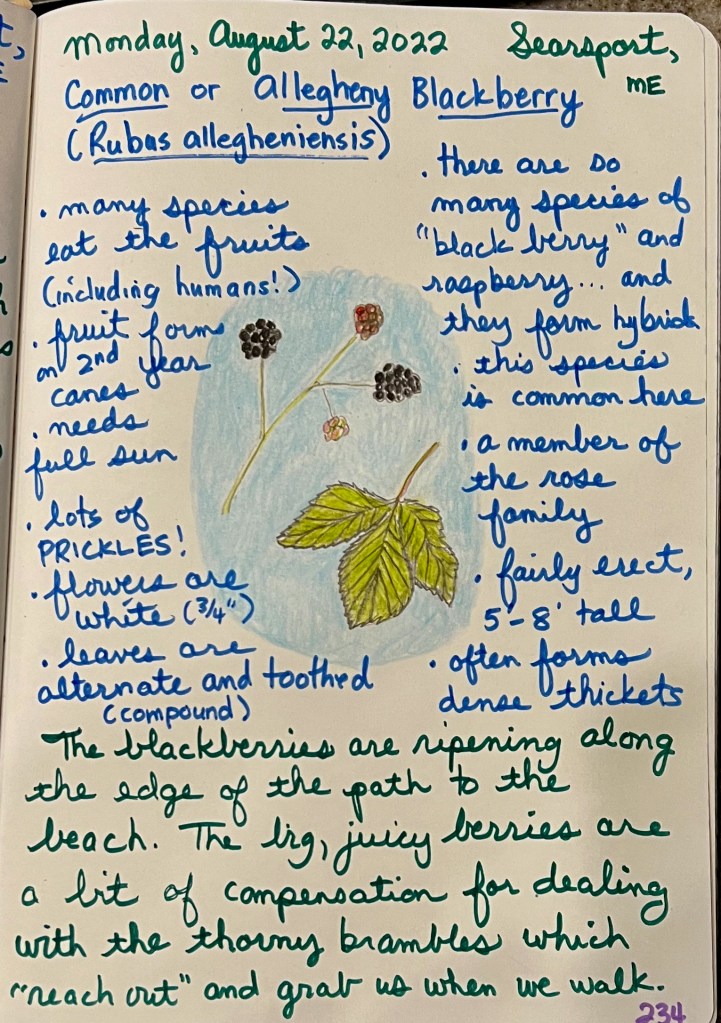 Monday, August 22, 2022 Searsport,
ME
Common or Allegheny Blackberry
(Rubus allegheniensis)
• many species
eat the fruits
(including humans!)
• fruit forms
on 2nd year
canes
• needs
full sun
• lots of
PRICKLES!
• flowers are
white (3/4")
• leaves are
alternate and toothed
(compound)
• there are so
many species of
"black berry" and
raspberry... and
they form hybrids
• this species
is common here
• a member of
the rose
family
• fairly erect,
5'-8' tall
• often forms
dense thickets
The blackberries are ripening along
the edge of the path to the
beach. The big, juicy berries are
a bit of compensation for dealing
with the thorny brambles which
"reach out" and grab us when we walk.
234